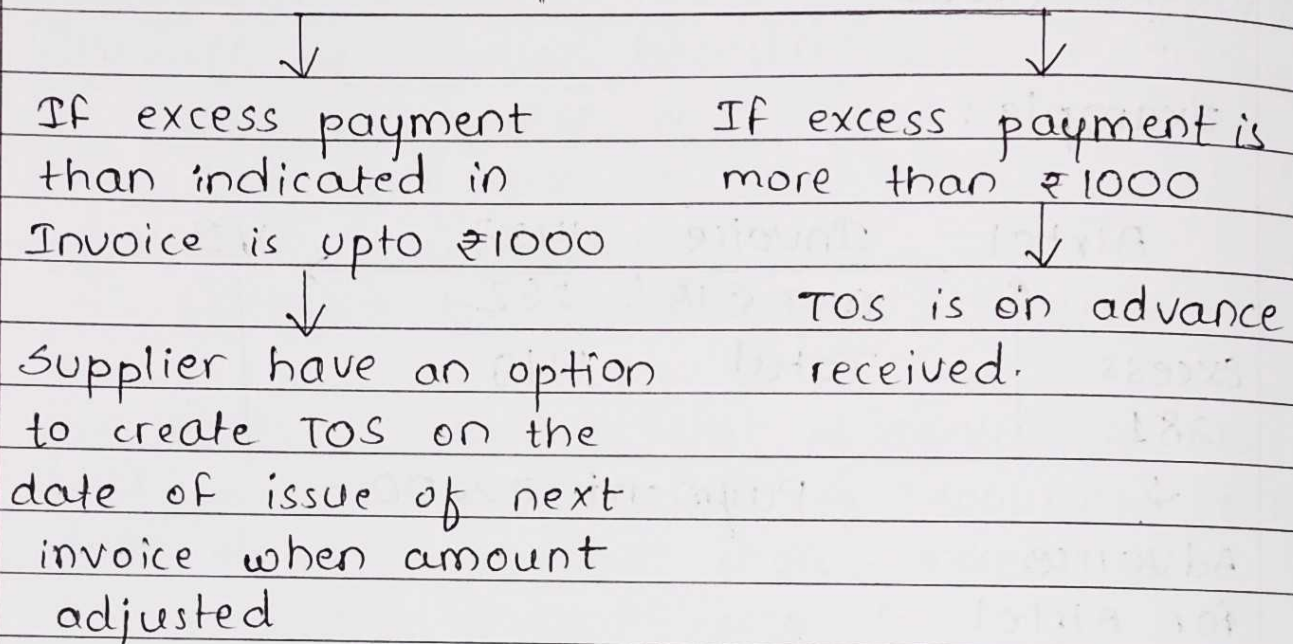 If excess payment
than indicated in
Invoice is upto ₹1000
Supplier have an option
to create TOS on the
date of issue of next
invoice when amount
adjusted
If excess payment is
more than ₹1000
TOS is on advance
received.